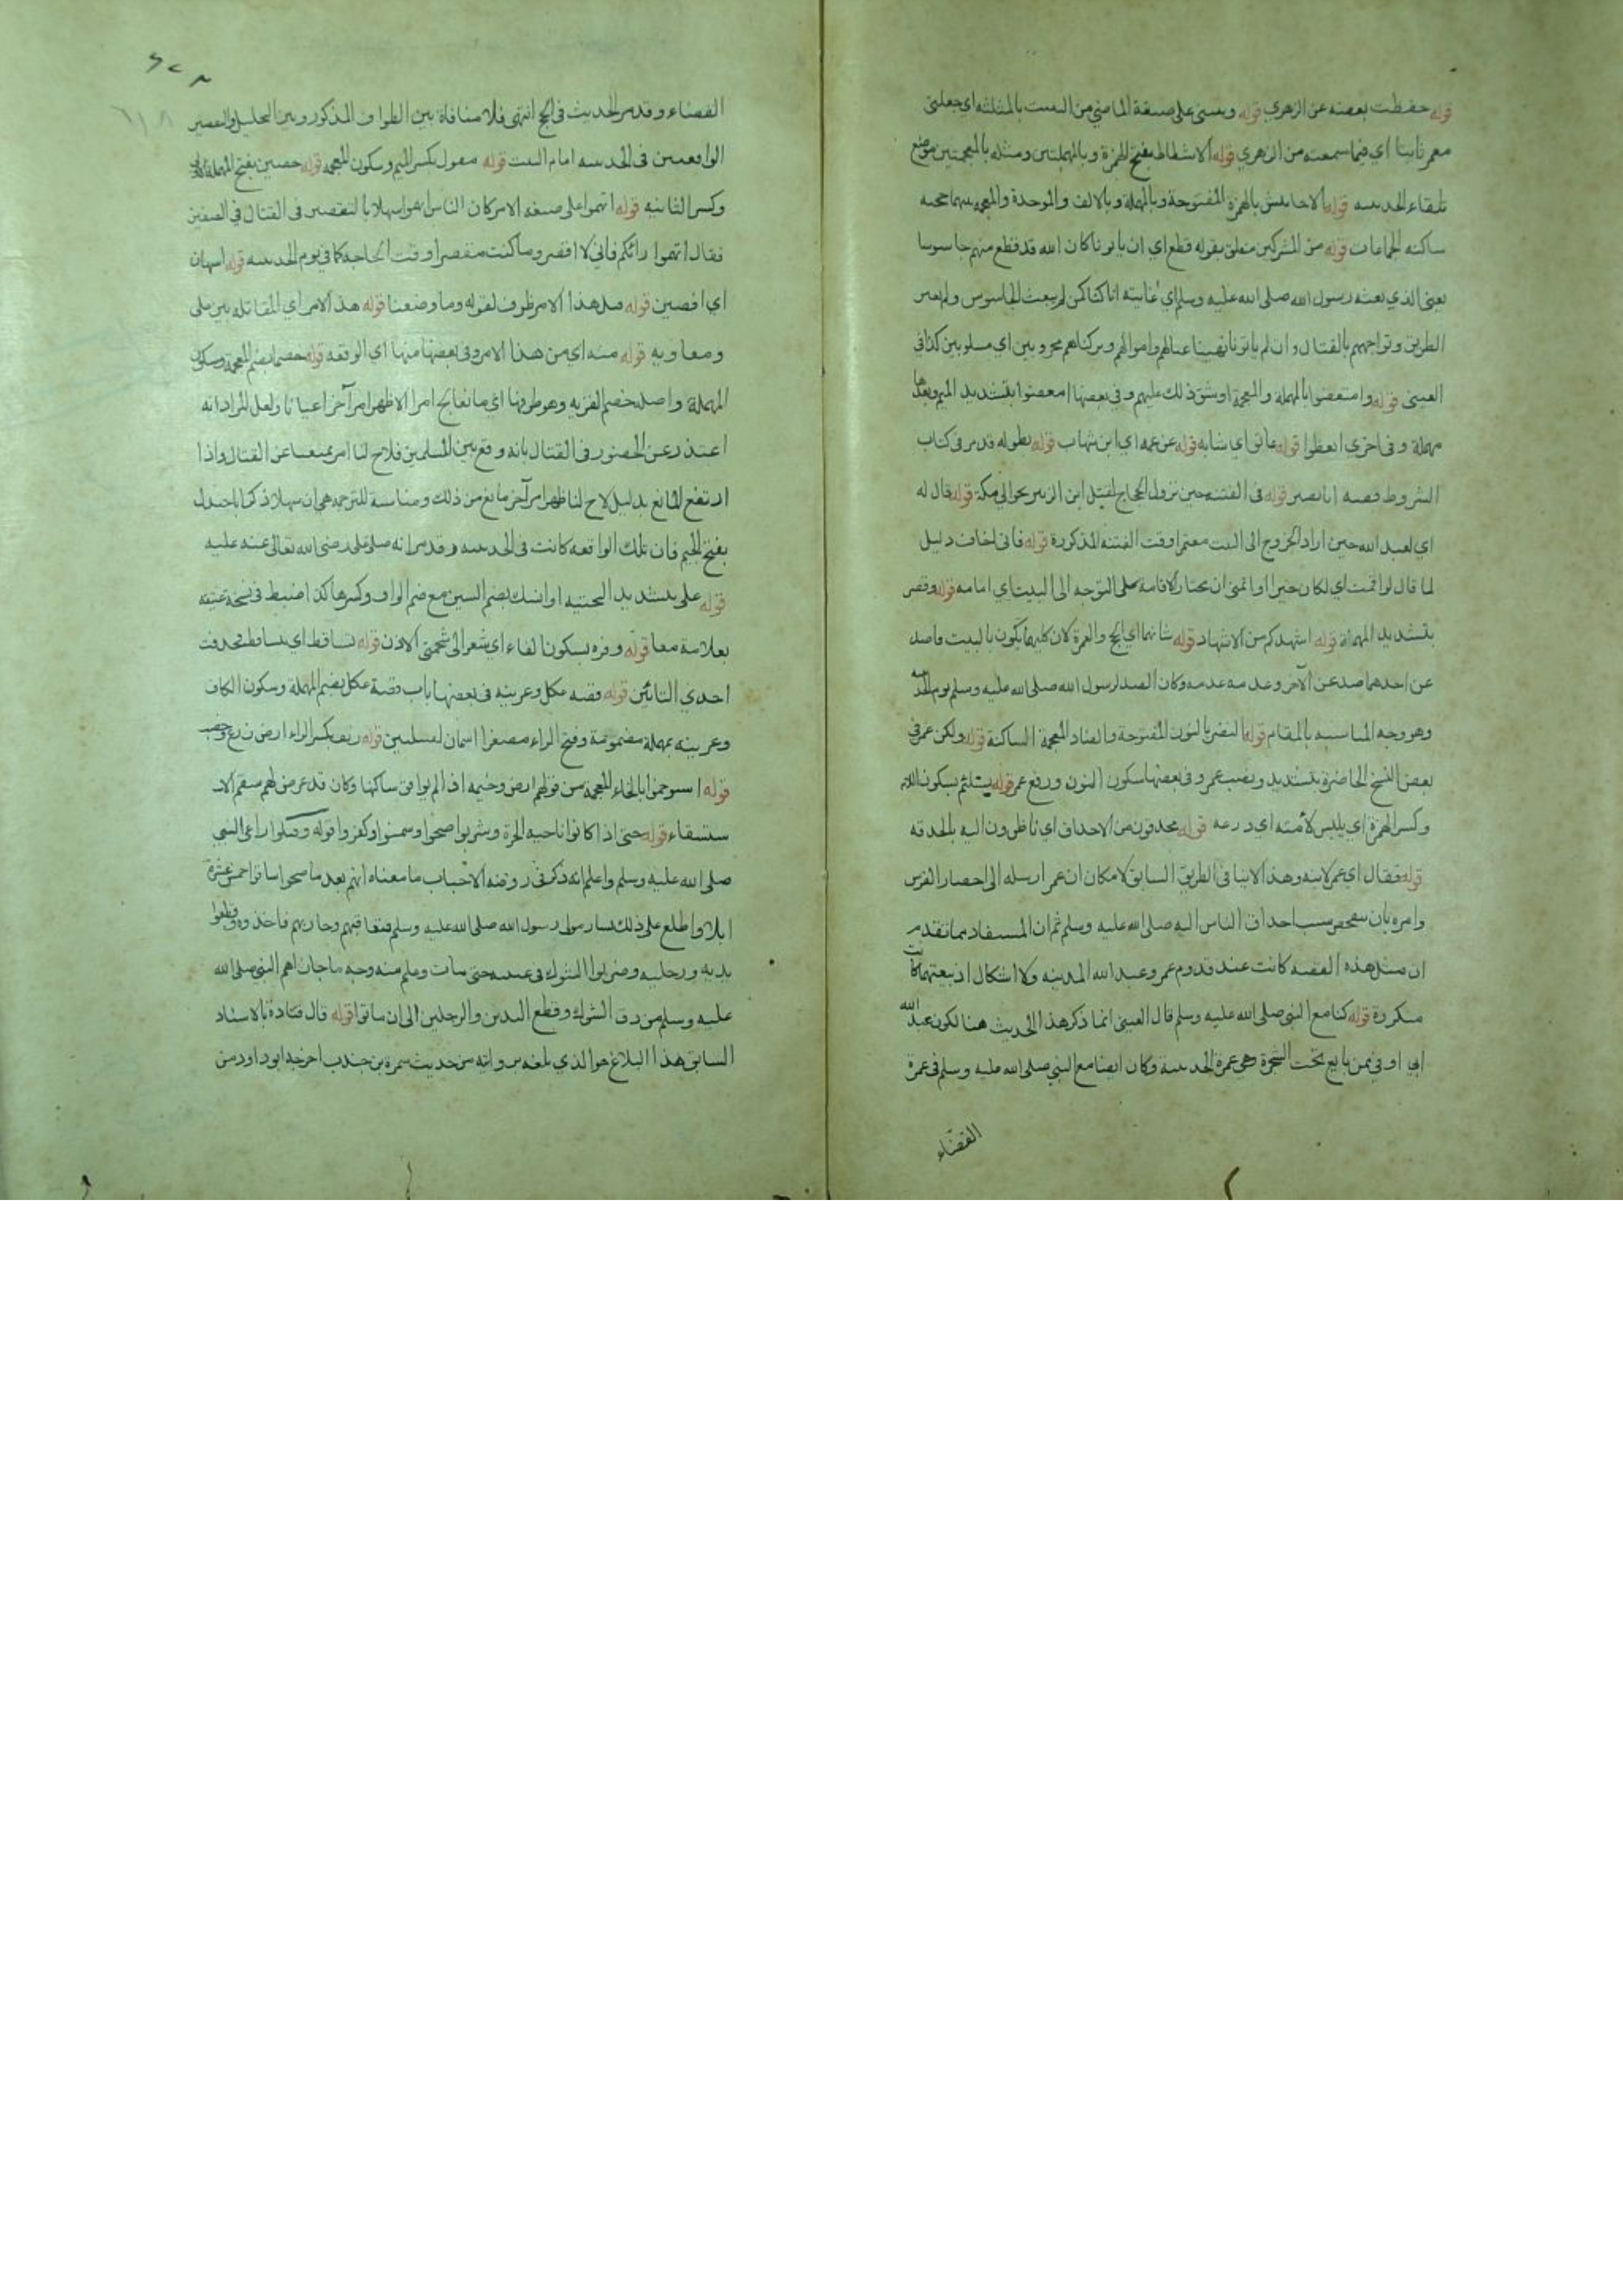 قوله حفظت بعضه عن الزهري قوله وبعثني على صيغة الماضي من البعث بالمثلثة اي جعلني
معمر ثابتا اي فيما سمعته من الزهري قوله الاشطاط بفتح الهمزة وبالمهملتين ومثله بالمعجمتين موضع
تلقاء الحديبية قوله الاحابيش بالهمزة المفتوحة وبالمهملة وبالالف والموحدة والمعجمة بينهما تحتية
ساكنة الجماعات قوله من المشركين متعلق بقوله قطع اي ان ياتونا كان الله قد قطع منهم جاسوسا
يعني الذي بعثه رسول الله صلى الله عليه وسلم اي غايته انا كنا كمن لم يبعث الجاسوس ولم يعبر
الطريق وتواجههم بالقتال وان لم ياتونا نهبنا عيالهم واموالهم وتركناهم محروبين اي مسلوبين كذا في
العيني قوله وامتعضوا بالمهملة والمعجمة اي شق ذلك عليهم وفي بعضها امعضوا بتشديد الميم وبعدها
مهملة وفي اخرى اتعظوا قوله عاتق اي شابة قوله عن عمه اي ابن شهاب قوله بطوله قد مر في كتاب
الشروط قصة ابا بصير قوله في الفتنة حين نزول الحجاج لقتل ابن الزبير حوالي مكة قوله قال له
اي لعبد الله حين اراد الخروج الى البيت معتمرا وقت الفتنة المذكورة قوله فاني اخاف دليل
لما قال لو اقمت اي لكان خيرا او اتمنى ان تختار الاقامة على التوجه الى البيت اي امامه قوله وقصر
بتشديد المهملة قوله اشهدكم من الاشهاد قوله شانهما اي الحج والعمرة لان كليهما يكون بالبيت فاصد
عن احدهما صد عن الآخر وعدمه عدمه وكان الصد لرسول الله صلى الله عليه وسلم يوم الحديبية
وهو وجه المناسبة بالمقام قوله النضر بالنون المفتوحة والضاد المعجمة الساكنة قوله ولكن عمر في
بعض النسخ الحاضرة بتشديد ونصب عمر وفي بعضها سكون النون ورفع عمر قوله يستلئم بسكون اللام
وكسر الهمزة اي يلبس لأمته اي درعه قوله محدقون من الاحداق اي ناظرون اليه بالحدقة
قوله فقال اي عمر لابنه وهذا لا ينافي الطريق السابق لامكان ان عمر ارسله الى احضار الفرس
وامره بان يتفحص سبب احداق الناس اليه صلى الله عليه وسلم ثم ان المستفاد مما تقدم
ان مثل هذه القصة كانت عند قدوم عمر وعبد الله المدينة ولا اشكال اذ بيعتهما كانت
مكررة قوله كنا مع النبي صلى الله عليه وسلم قال العيني انما ذكر هذا الحديث هنا لكون عبد الله
ابي اوفى ممن بايع تحت الشجرة وهي عمرة الحديبية وكان ايضا مع النبي صلى الله عليه وسلم في عمرة
القضاء
القضاء وقد مر الحديث في الحج انتهى فلا منافاة بين الطواف المذكور وبين التحليل والتقصير
الواقعين في الحديبية امام البيت قوله مغول بكسر الميم وسكون المعجمة قوله حصين بفتح المهملة
وكسر الثانية قوله اتهموا على صيغة الامر كان الناس اتهموا سهلا بالتقصير في القتال في الصفين
فقال اتهموا رائكم فاني لا اقصر وما كنت مقصرا وقت الحاجة كما في يوم الحديبية قوله اسهلن
اي افضين قوله قبل هذا الامر ظرف لقوله وما وضعنا قوله هذا الامر اي المقاتلة بين علي
ومعاوية قوله منه اي من هذا الامر وفي بعضها منها اي الوقعة قوله خصما بضم المعجمة وسكون
المهملة واصله خصم القربة وهو طرفها اي ما نعالج امرا الا ظهر امر آخر اعيانا ولعل المراد انه
اعتذر عن الحضور في القتال بانه وقع بين المسلمين فلاح لنا امر يمنعنا عن القتال واذا
ارتفع المانع بدليل لاح لنا ظهر امر آخر مانع من ذلك ومناسبة للترجمة هي ان سهلا ذكر ابا جندل
بفتح الجيم فان تلك الواقعة كانت في الحديبية وقد مر انه صلى على رضي الله تعالى عنه عليه
قوله على بتشديد التحتية او انسك بضم السين مع ضم الواف وكسرها كذا ضبط في نسخة عتيقة
بعلامة معا قوله وفرة بسكون الفاء اي شعر الى شحمتي الاذن قوله تساقط اي يتساقط فحذفت
احدى التائين قوله قصة عكل وعرينة في بعضها باب قصة عكل بضم المهملة وسكون الكاف
وعرينة بمهملة مضمومة وفتح الراء مصغرا اسمان لقبيلتين قوله ريف بكسر الراء ارض زرع وخصب
قوله استوخموا بالخاء المعجمة من قولهم ارض وخيمة اذا لم يوافق ساكنها وكان قد عرض لهم سقم الا
ستسقاء قوله حتى اذا كانوا ناحية الحرة وشربوا صحوا وسمنوا وكفروا قوله وقتلوا راعي النبي
صلى الله عليه وسلم واعلم انه ذكر في روضة الاحباب ما معناه انهم بعد ما صحوا ساقوا خمس عشرة
ابلا واطلع على ذلك يسار مولى رسول الله صلى الله عليه وسلم فتعاقبهم وحاربهم فاخذوه وقطعوا
يديه ورجليه وضربوا الشوك في عينيه حتى مات وعلم منه وجه ما جازاهم النبي صلى الله
عليه وسلم من دق الشوك وقطع اليدين والرجلين الى ان ماتوا قوله قال قتادة بالاسناد
السابق هذا البلاغ هو الذي بلغه بروايته من حديث سمرة بن جندب اخرجه ابو داود من